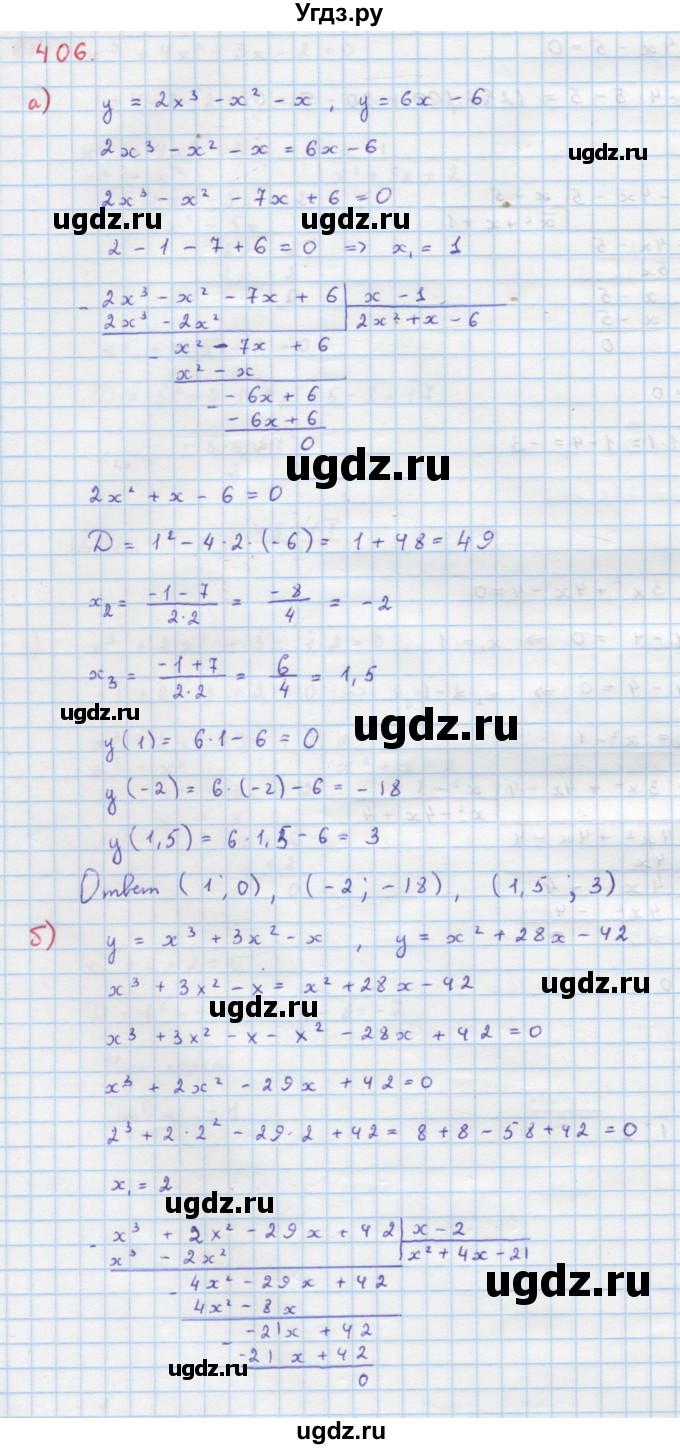 Угдз.ру
406.
а) y = 2x³ - x² - x , y = 6x - 6
2x³ - x² - x = 6x - 6
2x³ - x² - 7x + 6 = 0
ugdz.ru ugdz.ru
2 - 1 - 7 + 6 = 0 => x₁ = 1
- 2x³ - x² - 7x + 6 | x - 1
2x³ - 2x² | 2x² + x - 6
- x² - 7x + 6
x² - x
- - 6x + 6
- 6x + 6
0
ugdz.ru
2x² + x - 6 = 0
D = 1² - 4·2·(-6) = 1 + 48 = 49
x₂ = (-1 - 7)/(2·2) = -8/4 = -2
x₃ = (-1 + 7)/(2·2) = 6/4 = 1,5
ugdz.ru ugdz.ru
y(1) = 6·1 - 6 = 0
y(-2) = 6·(-2) - 6 = -18
y(1,5) = 6·1,5 - 6 = 3
Ответ (1; 0), (-2; -18), (1,5; 3)
б) y = x³ + 3x² - x , y = x² + 28x - 42
x³ + 3x² - x = x² + 28x - 42
ugdz.ru
ugdz.ru
x³ + 3x² - x - x² - 28x + 42 = 0
x³ + 2x² - 29x + 42 = 0
2³ + 2·2² - 29·2 + 42 = 8 + 8 - 58 + 42 = 0
x₁ = 2
ugdz.ru
- x³ + 2x² - 29x + 42 | x - 2
x³ - 2x² | x² + 4x - 21
- 4x² - 29x + 42
4x² - 8x
ugdz.ru
- - 21x + 42
- 21x + 42
0
ugdz.ru
ugdz.ru